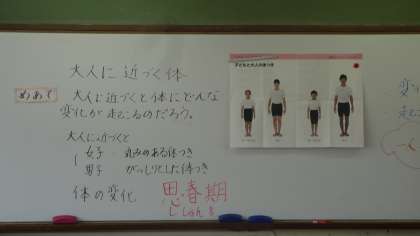 大人に近づく体
めあて
大人に近づくと体にどんな
変化が起こるのだろう。
大人に近づくと
女子 丸みのある体つき
男子 がっしりした体つき
体の変化 思春期
ししゅんき
子どもと大人の体つき